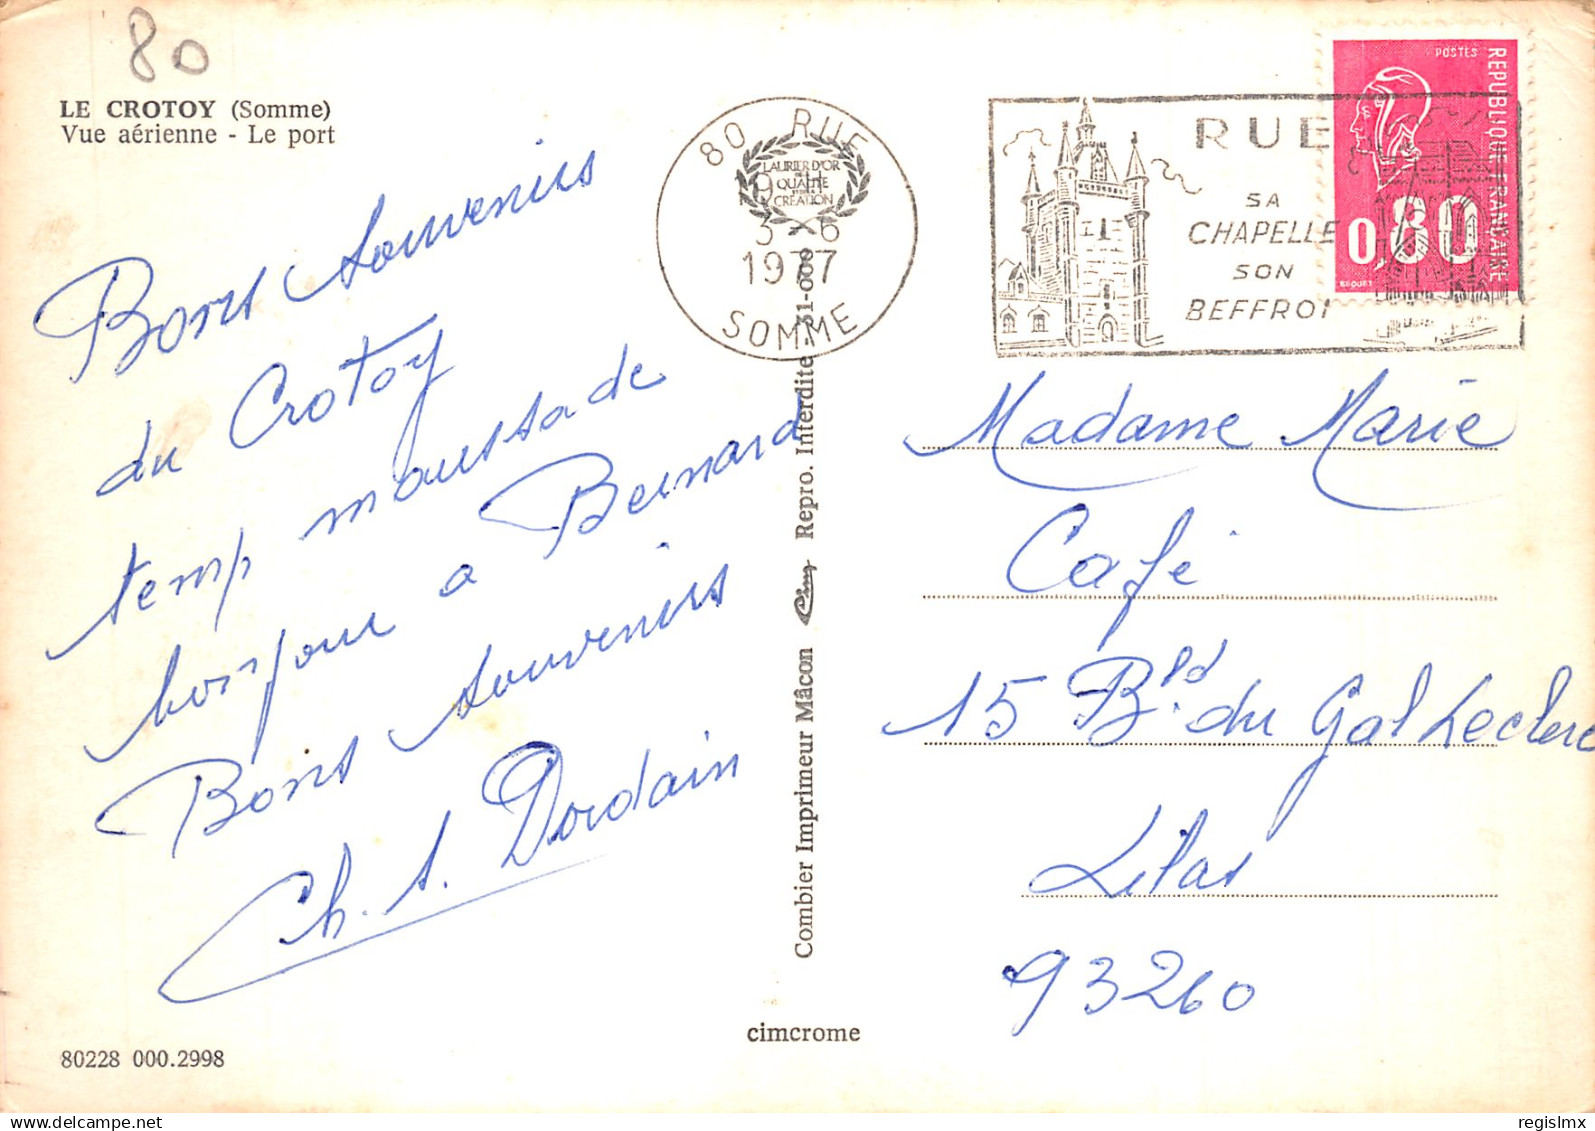 80
LE CROTOY (Somme)
Vue aérienne - Le port
Bons souvenirs
du Crotoy
temp maussade
bonjour a Bernard
Bons souvenirs
Ch. S. Dordain
80228 000.2998
80 RUE
LAURIER D'OR
QUALITE
CREATION
3-6
1977
SOMME
Combier Imprimeur Mâcon Cim Repro. Interdite
cimcrome
RUE
SA
CHAPELLE
SON
BEFFROI
POSTES
REPUBLIQUE FRANCAISE
0,80
Madame Marie
Café
15 Bld du Gal Leclerc
Lilas
93260
regislmx